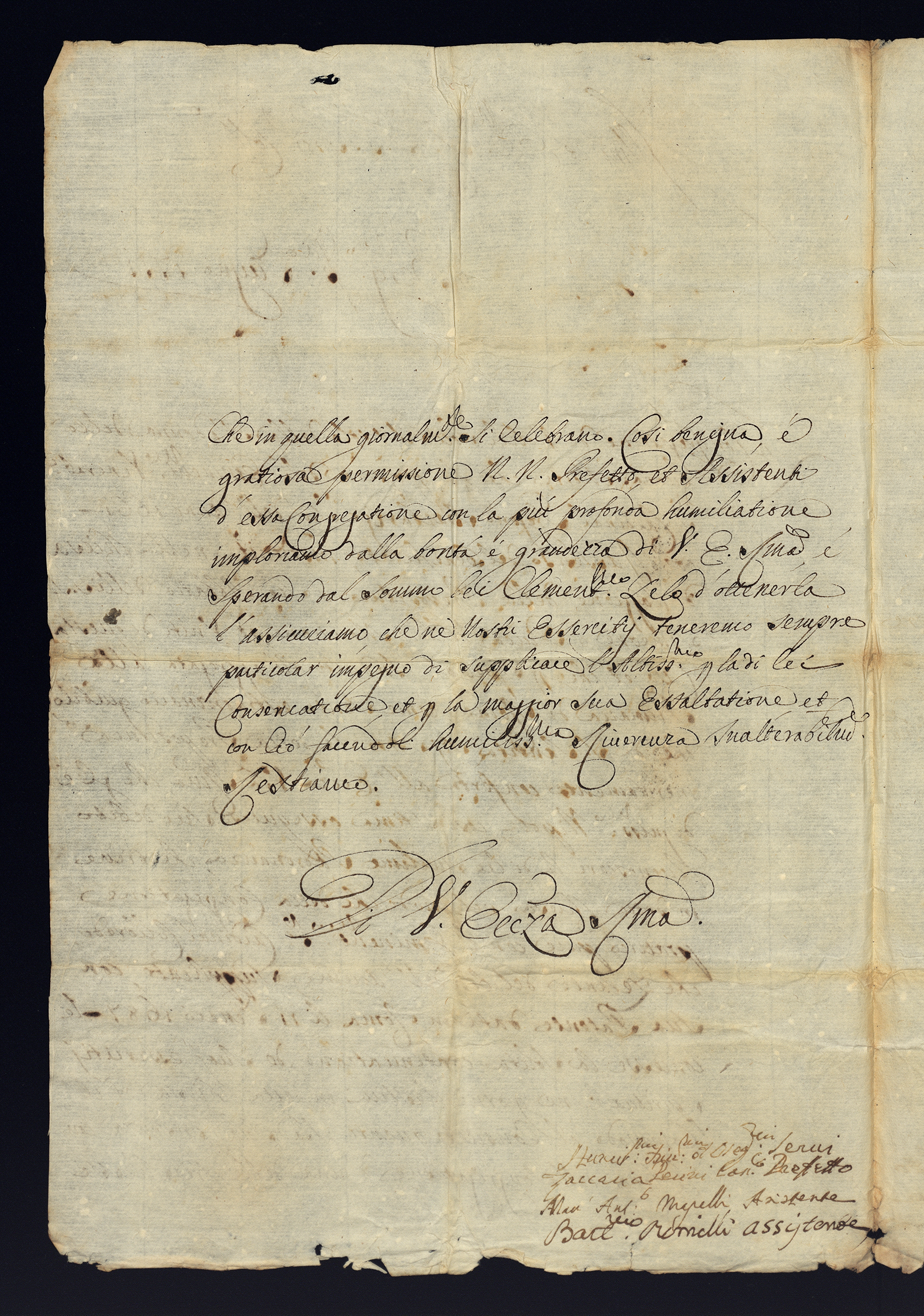 Che in quella giornalm.te si Celebrano. Cosi benigna, é
gratiosa permissione N. N. Prefetto, et Assistenti
d'essa Congregatione con la più profonda humiliatione
imploriamo dalla bontà é grandezza di V. E. Ill.ma é
Sperando dal Sommo lei Clement.mo Zelo d'ottenerla
l'assicuriamo, che ne Nostri Essercitij teneremo sempre
particolar impegno di supplicare l'Altiss.mo p la di lei
Conservatione, et p la maggior sua Essaltatione et
con ciò facendole humiliss.ma Riverenza Inalterabilm.te
Restiamo.
Di V. Ecc.za Ill.ma.
Humil.mi et Oseq.mi Servi
Zaccaria Prefetto
Mar' Ant.o Assistente
Bart.meo Romelli assistente